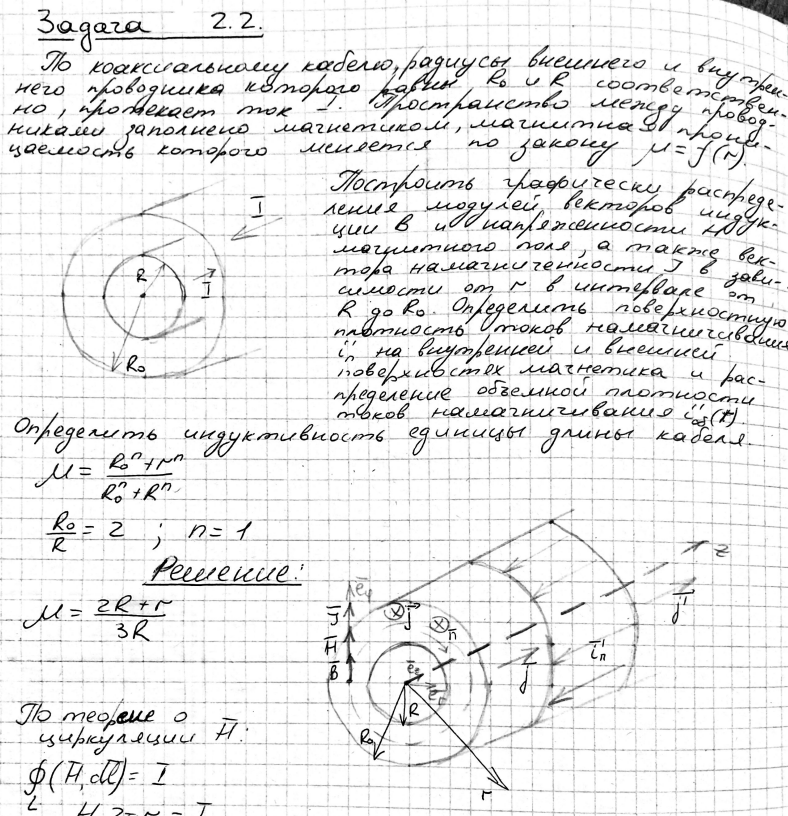 Задача 2.2.
По коаксиальному кабелю, радиусы внешнего и внутрен-
него проводника которого равны R₀ и R соответствен-
но, протекает ток I. Пространство между провод-
никами заполнено магнетиком, магнитная прони-
цаемость которого меняется по закону μ=f(r).
Построить графически распреде-
ления модулей векторов индук-
ции B и напряженности H
магнитного поля, а также век-
тора намагниченности J в зави-
симости от r в интервале от
R до R₀. Определить поверхностную
плотность токов намагничивания
i'ₙ на внутренней и внешней
поверхностях магнетика и рас-
пределение объемной плотности
токов намагничивания i'об(r).
I
R
I
R₀
Определить индуктивность единицы длины кабеля.
μ = (R₀ⁿ + rⁿ)/(R₀ⁿ + Rⁿ)
R₀/R = 2 ; n = 1
Решение:
μ = (2R + r)/3R
z
J̄
H̄
B̄
j̄
n̄
j̄'
ī'ₙ
j̄
R
R₀
r
По теореме о
циркуляции H̄:
∮(H̄, dl̄) = I
L